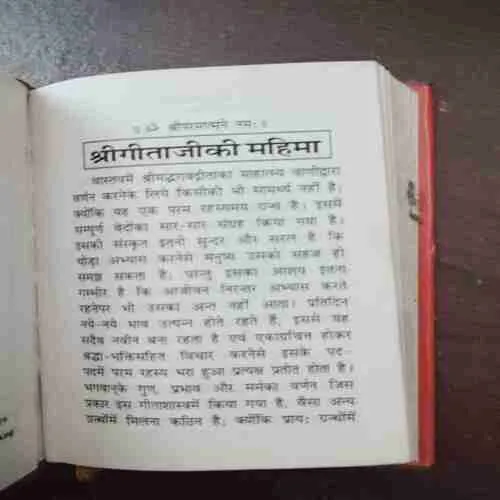 ॥ ॐ श्रीपरमात्मने नमः ॥
श्रीगीताजीकी महिमा
वास्तवमें श्रीमद्भगवद्गीताका माहात्म्य वाणीद्वारा
वर्णन करनेके लिये किसीकी भी सामर्थ्य नहीं है;
क्योंकि यह एक परम रहस्यमय ग्रन्थ है। इसमें
सम्पूर्ण वेदोंका सार-सार संग्रह किया गया है।
इसकी संस्कृत इतनी सुन्दर और सरल है कि
थोड़ा अभ्यास करनेसे मनुष्य उसको सहज ही
समझ सकता है। परन्तु इसका आशय इतना
गम्भीर है कि आजीवन निरन्तर अभ्यास करते
रहनेपर भी उसका अन्त नहीं आता। प्रतिदिन
नये-नये भाव उत्पन्न होते रहते हैं, इससे यह
सदैव नवीन बना रहता है एवं एकाग्रचित्त होकर
श्रद्धा-भक्तिसहित विचार करनेसे इसके पद-
पदमें परम रहस्य भरा हुआ प्रत्यक्ष प्रतीत होता है।
भगवान्‌के गुण, प्रभाव और मर्मका वर्णन जिस
प्रकार इस गीताशास्त्रमें किया गया है, वैसा अन्य
ग्रन्थोंमें मिलना कठिन है; क्योंकि प्रायः ग्रन्थोंमें